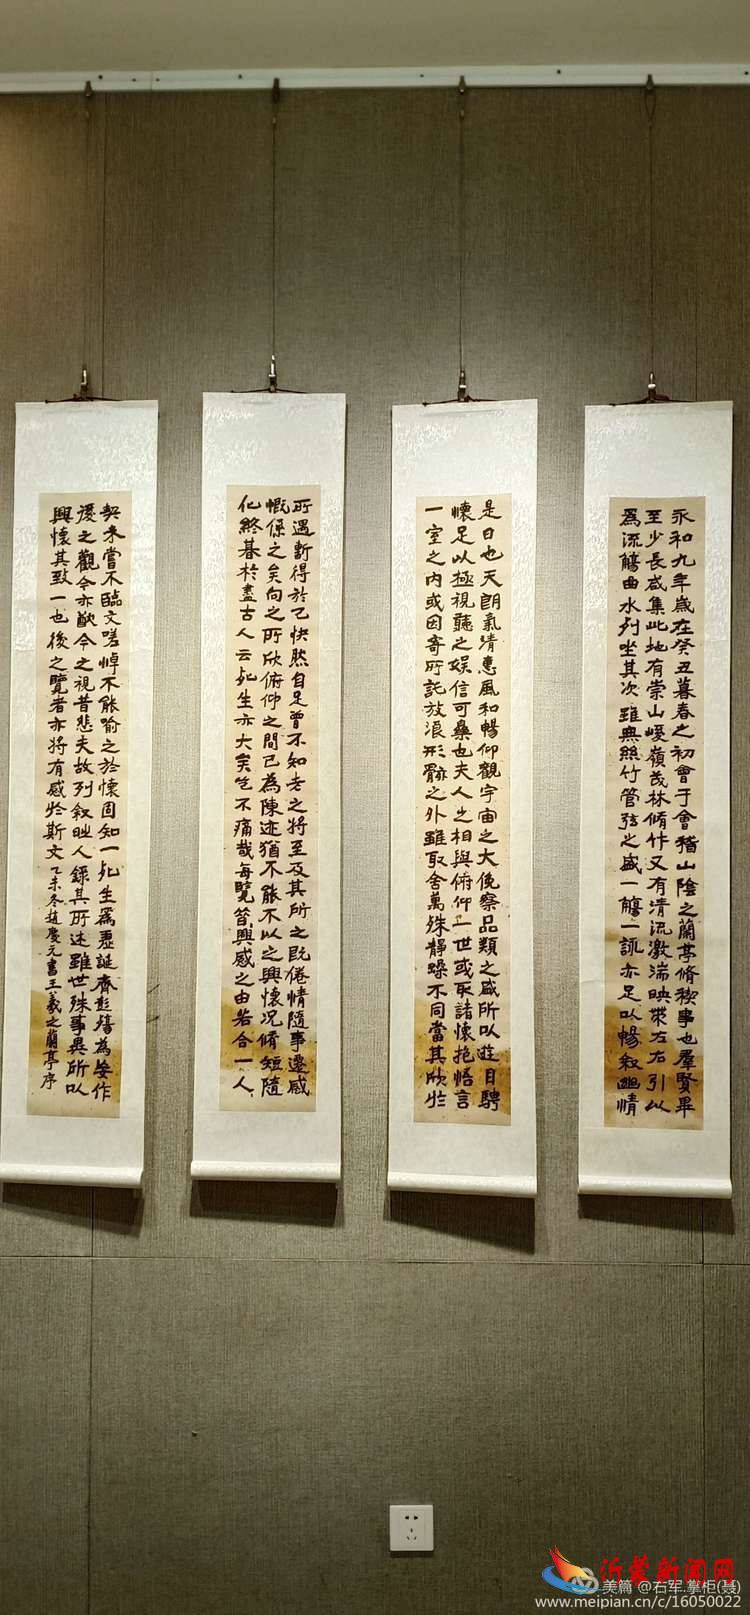 永和九年歲在癸丑暮春之初會于會稽山陰之蘭亭脩稧事也羣賢畢
至少長咸集此地有崇山峻嶺茂林脩竹又有清流激湍映帶左右引以
為流觴曲水列坐其次雖無絲竹管弦之盛一觴一詠亦足以暢敘幽情
是日也天朗氣清惠風和暢仰觀宇宙之大俛察品類之盛所以遊目騁
懷足以極視聽之娛信可樂也夫人之相與俯仰一世或取諸懷抱悟言
一室之內或因寄所託放浪形骸之外雖取舍萬殊靜躁不同當其欣於
所遇暫得於己快然自足曾不知老之將至及其所之既倦情隨事遷感
慨係之矣向之所欣俯仰之間已為陳迹猶不能不以之興懷況脩短隨
化終朞於盡古人云死生亦大矣豈不痛哉每覽昔興感之由若合一人
契未嘗不臨文嗟悼不能喻之於懷固知一死生為虛誕齊彭殤為妄作
後之觀今亦猷今之視昔悲夫故列敘時人錄其所述雖世殊事異所以
興懷其致一也後之覽者亦將有感於斯文 乙未冬趙慶元書王羲之蘭亭序
沂蒙新闻网
美篇 @石军.掌柜(聂)
www.meipian.cn/c/16050022